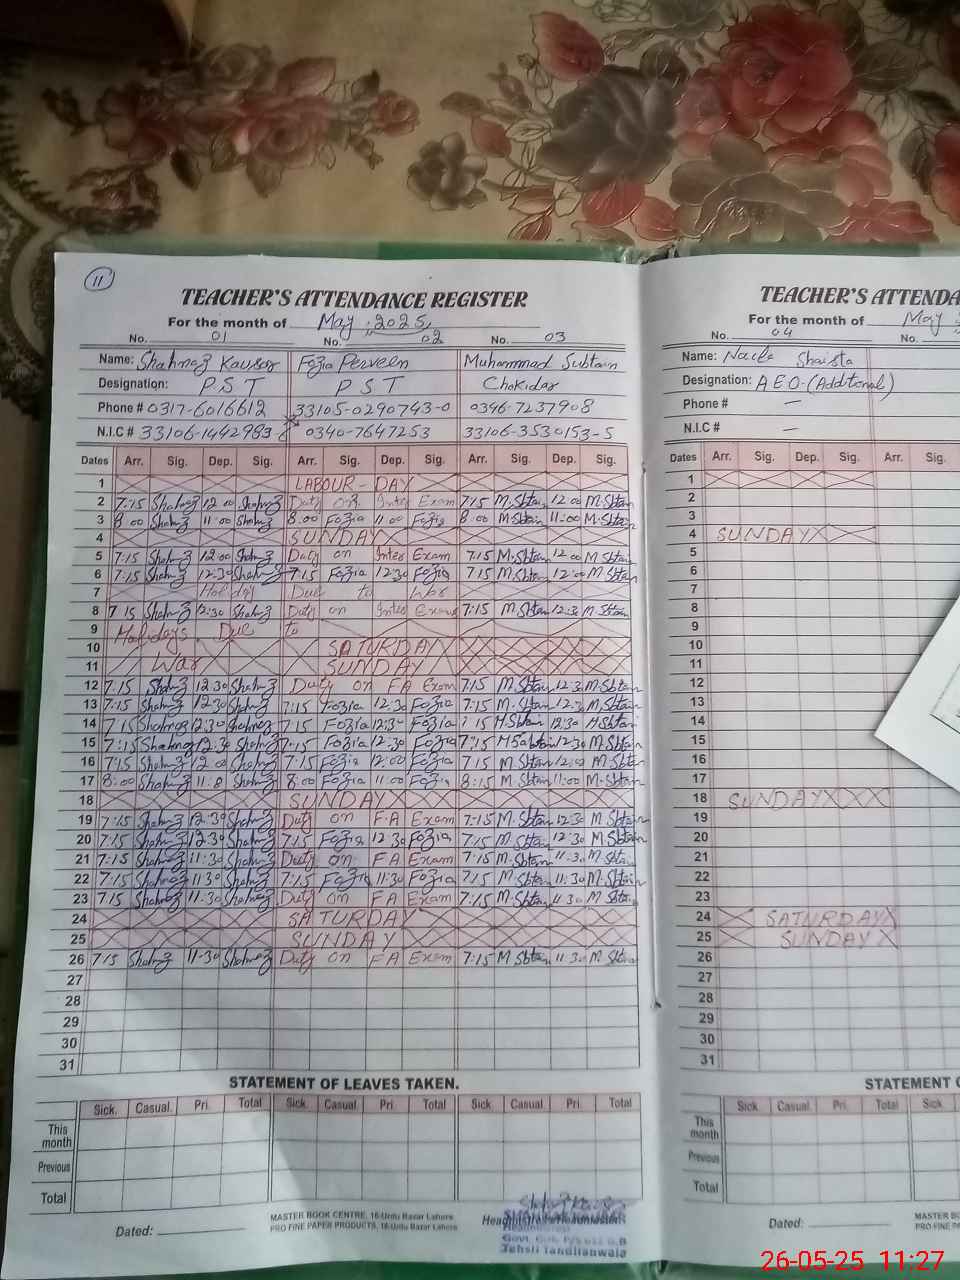 11
TEACHER'S ATTENDANCE REGISTER
For the month of May, 2025,
No. 01 No. 02 No. 03
Name: Shahnaz Kausar Fozia Perveen Muhammad Subtain
Designation: P S T P S T Chokidar
Phone # 0317-6016612 33105-0290743-0 0346-7237908
N.I.C # 33106-1442983-8 0340-7647253 33106-3530153-5
Dates Arr. Sig. Dep. Sig. Arr. Sig. Dep. Sig. Arr. Sig. Dep. Sig.
1 LABOUR - DAY
2 7:15 Shahnaz 12 00 Shahnaz Duty on Inter Exam 7:15 M.Sbtain 12 00 M.Sbtain
3 8 00 Shahnaz 11 00 Shahnaz 8.00 Fozia 11 00 Fozia 8:00 M.Sbtain 11:00 M.Sbtain
4 SUNDAY
5 7:15 Shahnaz 12:00 Shahnaz Duty on Inter Exam 7:15 M.Sbtain 12 00 M.Sbtain
6 7:15 Shahnaz 12:30 Shahnaz 7:15 Fozia 12:30 Fozia 7:15 M.Sbtain 12:00 M.Sbtain
7 Holiday Due to War
8 7 15 Shahnaz 12:30 Shahnaz Duty on Inter Exam 7:15 M.Sbtain 12:30 M.Sbtain
9 Holidays Due to
10 SATURDAY
11 War SUNDAY
12 7:15 Shahnaz 12.30 Shahnaz Duty on FA Exam 7:15 M.Sbtain 12:30 M.Sbtain
13 7:15 Shahnaz 12:30 Shahnaz 7:15 Fozia 12:30 Fozia 7:15 M.Sbtain 12:30 M.Sbtain
14 7:15 Shahnaz 12:30 Shahnaz 7:15 Fozia 12:30 Fozia 7 15 M.Sbtain 12:30 M.Sbtain
15 7:15 Shahnaz 12:30 Shahnaz 7:15 Fozia 12:30 Fozia 7:15 M.Sabtain 12:30 M.Sbtain
16 7:15 Shahnaz 12 00 Shahnaz 7:15 Fozia 12:00 Fozia 7:15 M.Sbtain 12:00 M.Sbtain
17 8:00 Shahnaz Shahnaz 8:00 Fozia 11:00 Fozia 8:15 M.Sbtain 11:00 M.Sbtain
18 SUNDAY
19 7:15 Shahnaz 12:30 Shahnaz Duty on F.A Exam 7:15 M.Sbtain 12:30 M.Sbtain
20 7:15 Shahnaz 12:30 Shahnaz 7:15 Fozia 12:30 Fozia 7:15 M.Sbtain 12:30 M.Sbtain
21 7:15 Shahnaz 11:30 Shahnaz Duty on FA Exam 7:15 M.Sbtain 11:30 M.Sbtain
22 7:15 Shahnaz 11:30 Shahnaz 7:15 Fozia 11:30 Fozia 7:15 M.Sbtain 11:30 M.Sbtain
23 7:15 Shahnaz 11:30 Shahnaz Duty on FA Exam 7:15 M.Sbtain 11:30 M.Sbtain
24 SATURDAY
25 SUNDAY
26 7:15 Shahnaz 11:30 Shahnaz Duty on FA Exam 7:15 M.Sbtain 11:30 M.Sbtain
27
28
29
30
31
STATEMENT OF LEAVES TAKEN.
Sick. Casual. Pri. Total Sick. Casual. Pri. Total Sick. Casual. Pri. Total
This month
Previous
Total
Dated:
MASTER BOOK CENTRE, 16-Urdu Bazar Lahore
PRO FINE PAPER PRODUCTS, 16-Urdu Bazar Lahore
Tehsil Tandlianwala
TEACHER'S ATTENDA
For the month of May
No. 04 No.
Name: Naela Shaista
Designation: AEO-(Addtional)
Phone # —
N.I.C # —
Dates Arr. Sig. Dep. Sig. Arr. Sig.
1
2
3
4 SUNDAY
5
6
7
8
9
10
11
12
13
14
15
16
17
18 SUNDAY
19
20
21
22
23
24 SATURDAY
25 SUNDAY
26
27
28
29
30
31
STATEMENT O
Sick. Casual. Pri. Total Sick
This month
Previous
Total
Dated:
MASTER BO
PRO FINE P
26-05-25 11:27